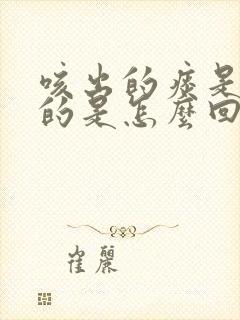 咳出的痰是
的是怎麼回
崔麗